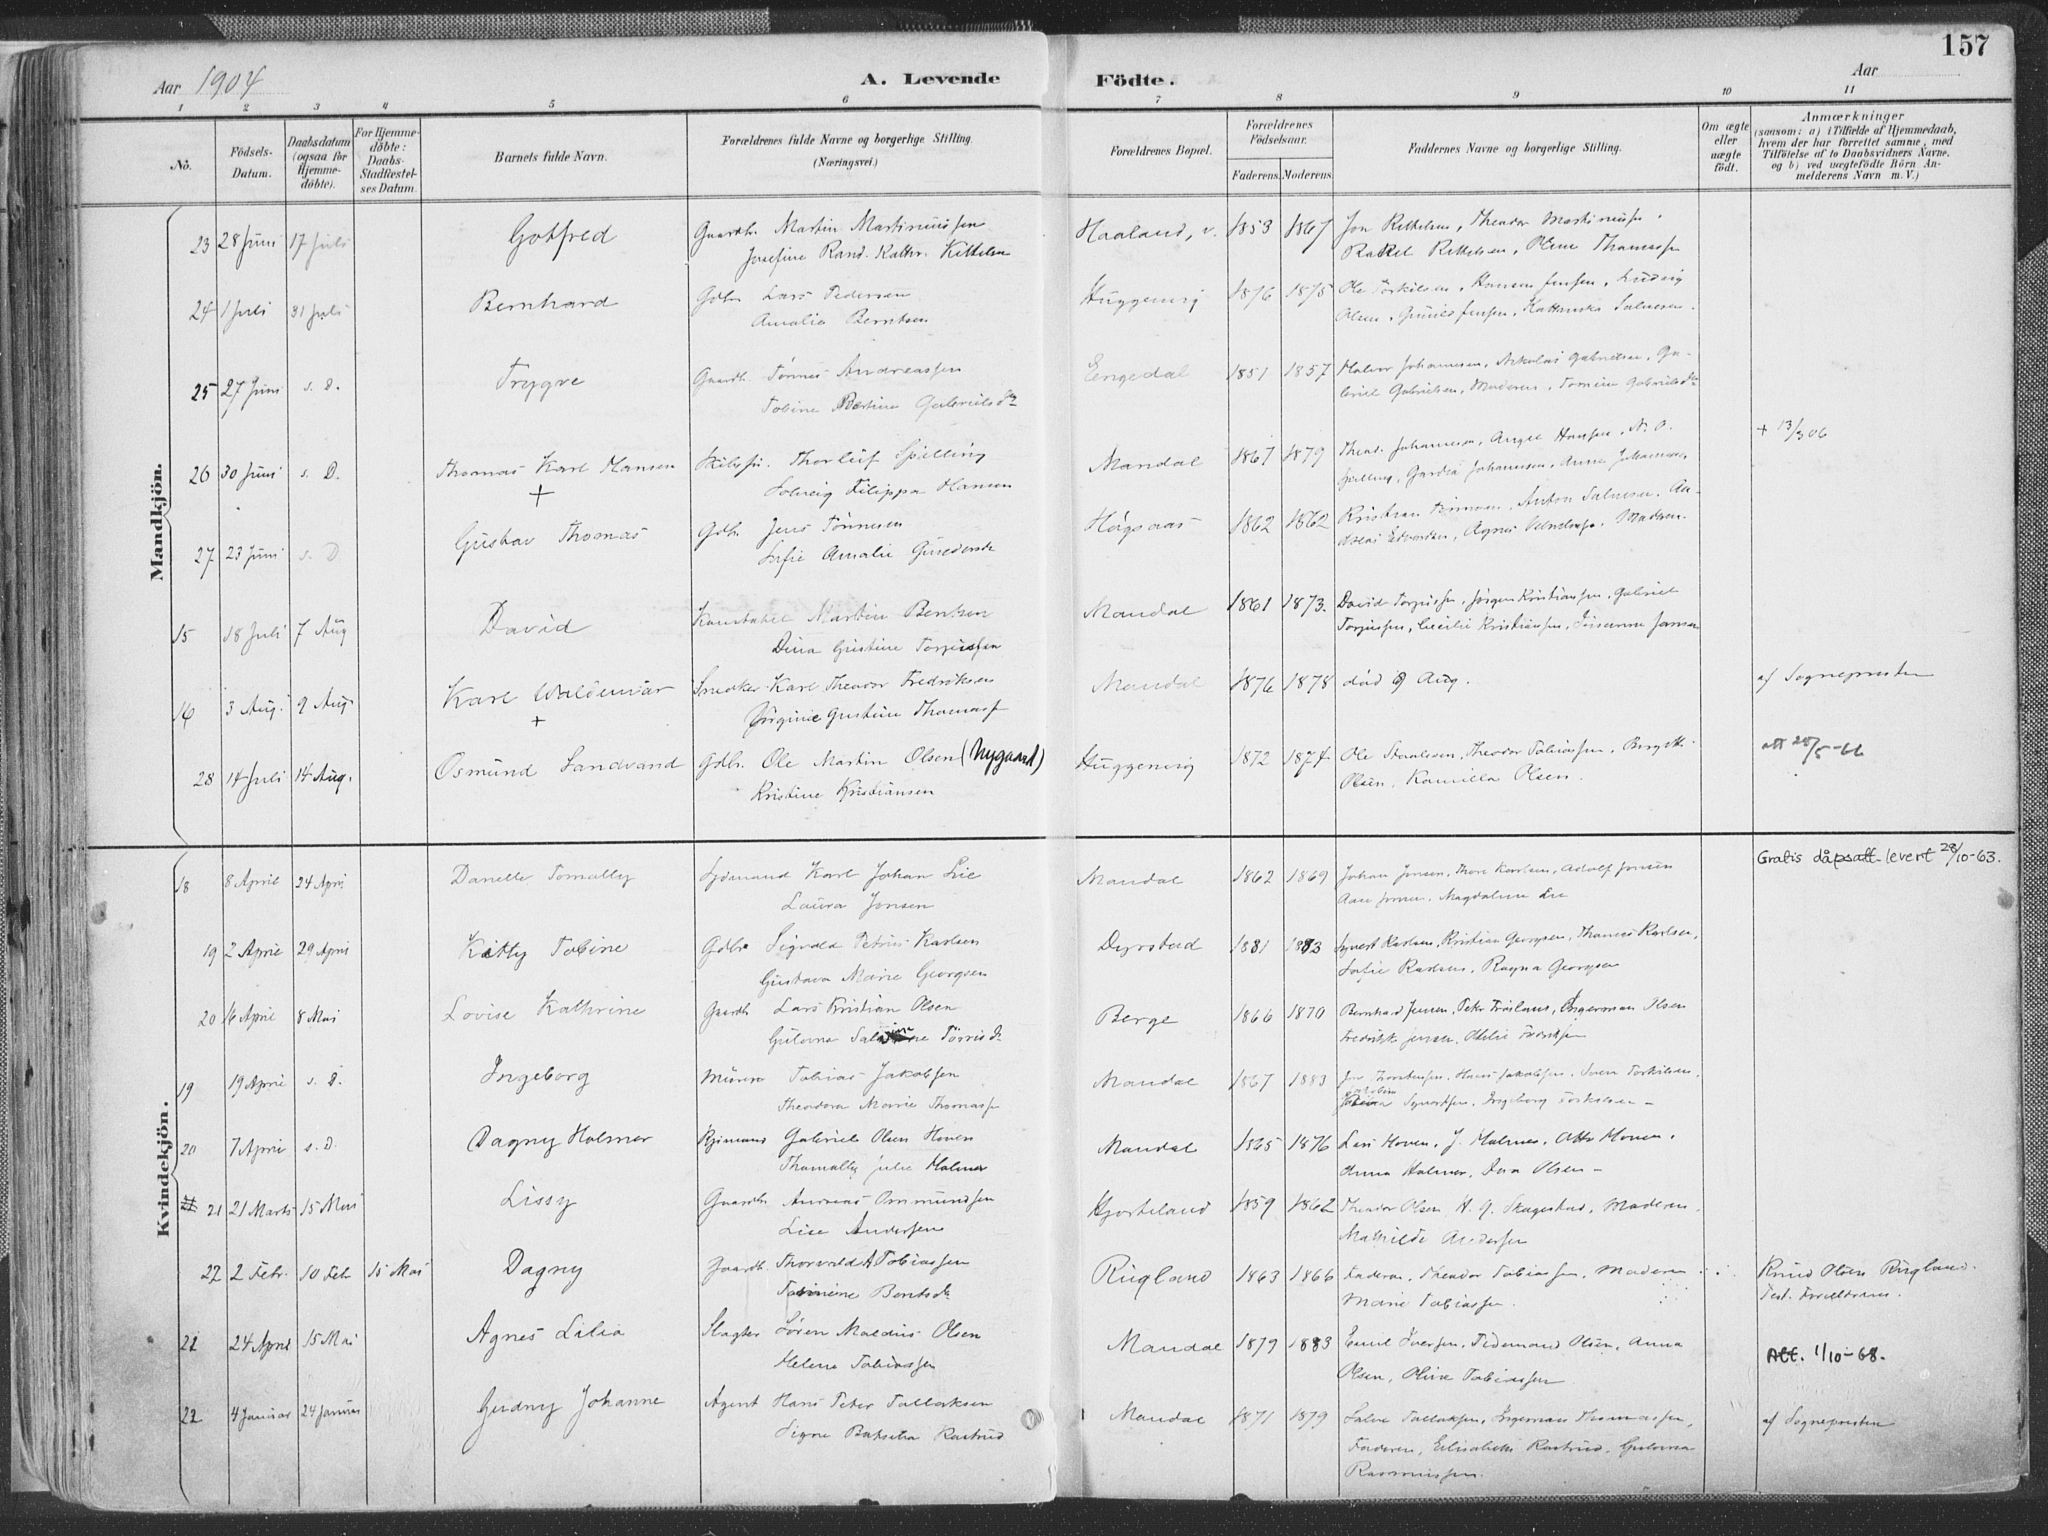 157
Aar 1904 A. Levende Födte. Aar
1 2 3 4 5 6 7 8 9 10 11
No. Födsels-Datum. Daabsdatum (ogsaa for Hjemme-döbte). For Hjemme-döbte: Daabs-Stadfæstel-ses Datum. Barnets fulde Navn. Forældrenes fulde Navne og borgerlige Stilling. (Næringsvei.) Forældrenes Bopæl. Forældrenes Födselsaar. Faderens. Moderens. Faddernes Navne og borgerlige Stilling. Om ægte eller uægte födt. Anmærkninger (saasom: a) i Tilfælde af Hjemmedaab, hvem der har forrettet samme, med Tilföielse af to Daabsvidners Navne, og b) ved uægtefödte Börn An-melderens Navn m. V.)
Mandkjön.
23 28 Juni 17 Juli Gotfred Gaardb. Martin Martiniussen Haaland, v. 1853 1867 Jon Kittelsen, Theodor Martiniussen.
Josefine Rand. Kathr. Kittelsen Rakel Kittelsen, Oline Thomassen
24 1 Juli 31 Juli Bernhard Gdbr Lars Pedersen Huggenvig 1876 1875 Ole Torkilsen, Hansen Jensen, Ludvig
Amalie Berntsen Olsen,
25 27 Juni s. D. Trygve Gaardb. Tønnes Andreassen Engedal 1851 1857 Halvor Johannesen, Nikolai Gabrielsen, Ga-
Tobine Bertine Gabrielsdtr briel Gabrielsen, Moderen, Tomine Gabrielsdtr
26 30 Juni s. D. Thomas Karl Hansen Thorleif Spilling Mandal 1867 1879 Johannesen, Aagot Hansen, N. O. + 13/3 06
+ Solveig Filippa Hansen Spilling, Johannesen, Anna Johannesen
27 23 Juni s. D Gustav Thomas Gdbr. Jens Tønnesen Høgsaas 1862 1862 Kristian Anton Salvesen,
Sofie Amalie Moderen.
15 18 Juli 7 Aug David Konstabel Martin Bentsen Mandal 1861 1873. David Torjussen, Jørgen Kristiansen, Gabriel
Dina Gustine Torjussen Torjussen, Cecilie Kristiansen, Susanne Jansen
16 3 Aug. 9 Aug. Karl Waldemar Snedker Karl Theodor Fredriksen Mandal 1876 1878 død 9 Aug. af Sognepresten
+ Jørgine Gustine Thomass
28 14 Juli 14 Aug. Osmund Sandvand Gdbr. Ole Martin Olsen (Nygaard) Huggenvig 1872 1874. Ole Staalesen, Theodor Tobiassen, Bergitte att 20/5-66
Kristine Kristiansen Olsen, Kamilla Olsen.
Kvindekjön.
18 8 April 24 April Danelle Tomally Sømand Karl Johan Lie Mandal 1862 1869 Johan Jonsen, Thore Karlsen, Adolf Jonsen Gratis dåpsatt levert 28/10-63.
Laura Jonsen Magdalene Lie
19 2 April 29 April Kitty Tobine Gdbr Sigvald Petrus Karlsen Dyrstad 1881 1883 Syvert Karlsen, Kristian Georgsen, Thomas Karlsen,
Gustava Marie Georgsen Sofie Karlsen, Ragna Georgsen
20 16 April 8 Mai Lovise Kathrine Gaardb Lars Kristian Olsen Berge 1866 1870 Bernhard Jensen, Peter Ingerman Olsen
Gulovna Tørrisd.
19 19 April s. D. Ingeborg Murer Tobias Jakobsen Mandal 1867 1883 Hans Jakobsen, Torkilsen,
Theodora Marie Thomass Syvertsen, Ingeborg Torkilsen -
20 7 April s. D. Dagny Holmer Gabriel Olsen Hoven Mandal 1865 1876 Lars Hoven, J. Holmer, Otto Hoven,
Thomally Julie Holmer Anna Holmer, Olsen -
21 21 Marts 15 Mai Lissy Gaardb. Andreas Ommundsen Hjorteland 1859 1862 Theodor Olsen, H. G. Skagestad, Moderen,
Lise Andersen Mathilde Andersen
22 2 Febr. 10 Febr 15 Mai Dagny Gaardb. Thorvald A Tobiassen Rugland 1863 1866 Faderen, Theodor Tobiassen, Moderen Knud Olsen Rugland.
Bentsdtr Marie Tobiassen. Test. Forældrene.
21 24 April 15 Mai Agnes Lilia Slagter Søren Olsen Mandal 1879 1883 Emil Iversen, Olsen, Anna
Helene Tobiassen Olsen, Oline Tobiassen Att. 1/10-68.
22 4 Januar 24 Januar Gudny Johanne Agent Hans Peter Tallaksen Mandal 1871 1879 Salve Tallaksen, Ingeman Thomassen, af Sognepresten
Signe Rastrud Faderen, Elisabeth Rastrud, Gulovna
Rasmussen.